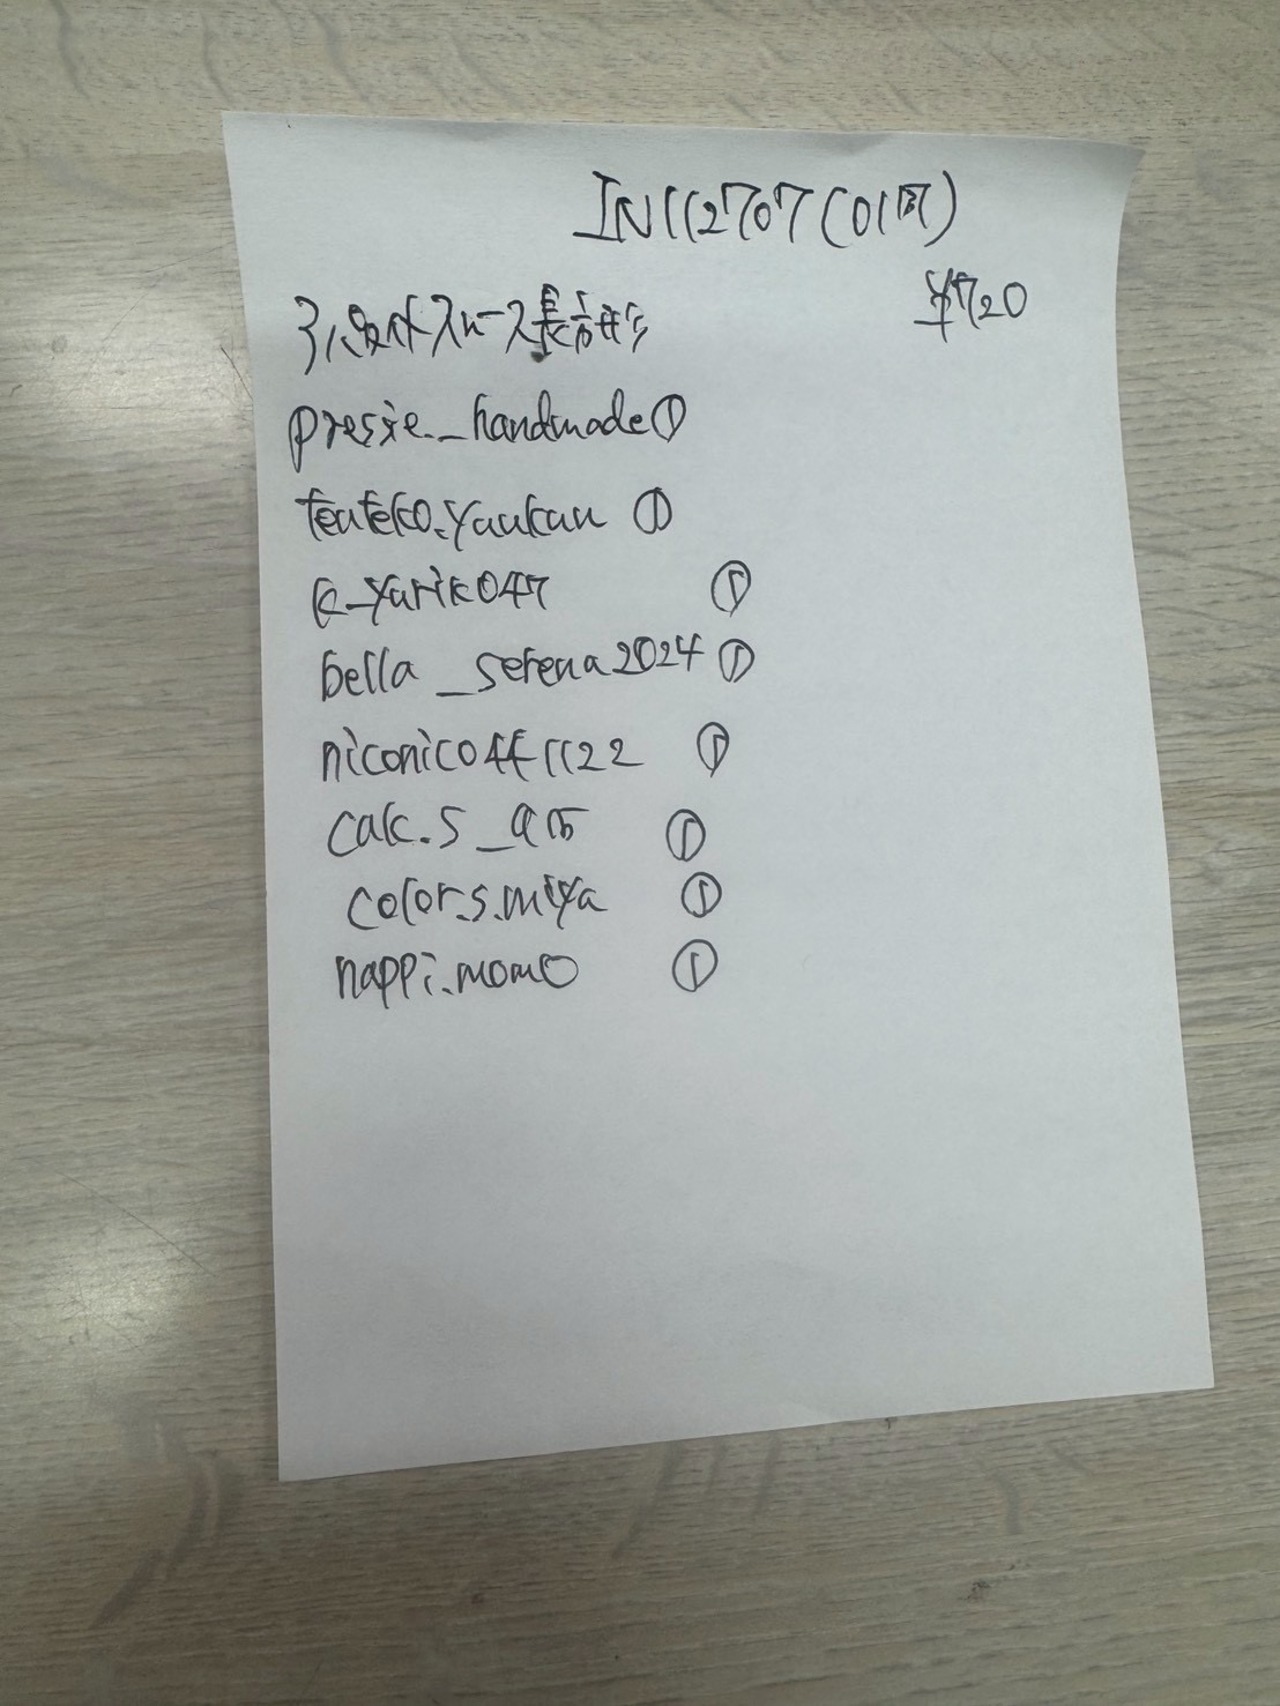 IN112707 (01図)
¥720
引っ張りスレース長方形
presie._handmade①
teateko.yuukuu ①
k_yuriko47 ①
bella_serena2024 ①
niconico44 1122 ①
calc.s_915 ①
color.s.miya ①
nappi.momo ①